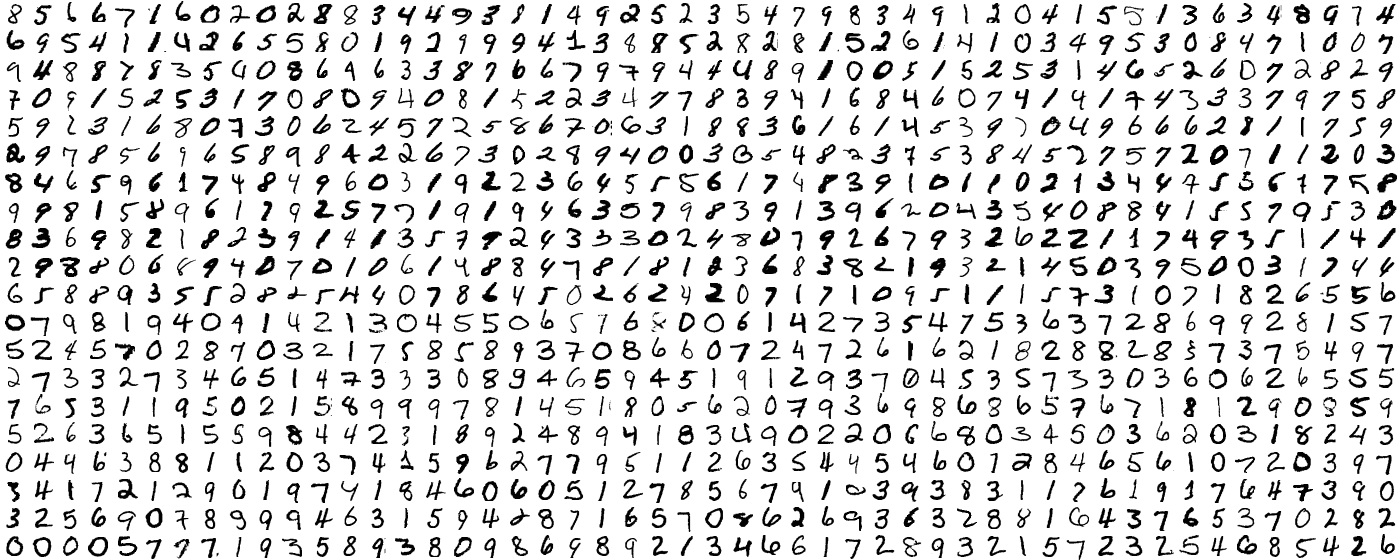 8 5 6 6 7 1 6 0 2 0 2 8 8 3 4 4 9 3 8 1 4 9 2 5 2 3 5 4 7 9 8 3 4 9 1 2 0 4 1 5 5 1 3 6 3 4 8 9 7 4
6 9 5 4 1 1 4 2 6 5 5 8 0 1 9 2 9 9 9 4 1 3 8 8 5 2 8 2 8 1 5 2 6 1 4 1 0 3 4 9 5 3 0 8 4 7 1 0 0 7
9 4 8 8 7 8 3 5 4 0 8 6 9 6 3 3 8 7 6 6 7 9 7 9 4 4 4 8 9 1 0 0 5 1 5 2 5 3 1 4 6 5 2 6 0 7 2 8 2 9
7 0 9 1 5 2 5 3 1 7 0 8 0 9 4 0 8 1 5 2 2 3 4 7 7 8 3 9 4 1 6 8 4 6 0 7 4 1 4 1 7 4 3 3 3 7 9 7 5 8
5 9 2 3 1 6 8 0 7 3 0 6 2 4 5 7 2 5 8 6 7 0 6 3 1 8 8 3 6 1 6 1 4 5 3 9 7 0 4 9 6 6 6 2 8 1 1 7 5 9
2 9 7 8 5 6 9 6 5 8 9 8 4 2 2 6 7 3 0 2 8 9 4 0 0 3 3 5 4 8 2 3 7 5 3 8 4 5 2 7 5 7 2 0 7 1 1 2 0 3
8 4 6 5 9 6 1 7 4 8 4 9 6 0 3 1 9 2 2 3 6 4 5 5 8 6 1 7 4 8 3 9 1 0 1 1 0 2 1 3 4 4 7 5 3 6 1 7 5 8
9 9 8 1 5 8 9 6 1 7 9 2 5 7 7 1 9 1 9 4 6 3 0 7 9 8 3 9 1 3 9 6 2 0 4 3 5 4 0 8 8 4 1 5 5 7 9 5 3 0
8 3 6 9 8 2 1 8 2 3 9 1 4 1 3 5 7 9 2 4 3 3 3 0 2 4 8 0 7 9 2 6 7 9 3 2 6 2 2 1 1 7 4 9 3 5 1 1 4 1
2 9 8 8 0 6 8 9 4 0 7 0 1 0 6 1 4 8 8 4 7 8 1 8 1 2 3 6 8 3 8 2 1 9 3 2 1 4 5 0 3 9 5 0 0 3 1 7 4 4
6 5 8 8 9 3 5 5 2 8 2 5 4 4 0 7 8 6 4 5 0 2 6 2 4 2 0 7 1 7 1 0 9 5 1 1 5 7 3 1 0 7 1 8 2 6 5 5 6
0 7 9 8 1 9 4 0 9 1 4 2 1 3 0 4 5 5 0 6 5 7 6 8 0 0 6 1 4 2 7 3 5 4 7 5 3 6 3 7 2 8 6 9 9 2 8 1 5 7
5 2 4 5 7 0 2 8 7 0 3 2 1 7 5 8 5 8 9 3 7 0 8 6 6 0 7 2 4 7 2 6 1 6 2 1 8 2 8 8 2 8 3 7 3 7 5 4 9 7
2 7 3 3 2 7 3 4 6 5 1 4 7 3 3 3 0 8 9 4 6 5 9 4 5 1 9 1 2 9 3 7 0 4 5 3 5 7 3 3 0 3 6 0 6 2 6 5 5 5
7 6 5 3 1 1 9 5 0 2 1 5 8 9 9 9 7 8 1 4 5 1 8 0 5 6 2 0 7 9 3 6 9 8 6 8 6 5 7 6 7 1 8 1 2 9 0 8 5 9
5 2 6 3 6 5 1 5 5 9 8 4 4 2 3 1 8 9 2 4 8 9 4 1 8 3 4 9 0 2 2 0 6 6 8 0 3 4 5 0 3 6 2 0 3 1 8 2 4 3
0 4 4 6 3 8 8 1 1 2 0 3 7 4 1 5 9 6 2 7 7 9 5 1 1 2 6 3 5 4 4 5 4 6 0 1 2 8 4 6 5 6 1 0 7 2 0 3 9 7
3 4 1 7 2 1 2 9 6 1 9 7 4 1 8 4 6 0 6 0 5 1 2 7 8 5 6 7 9 1 0 3 9 3 8 3 1 1 7 6 1 9 1 7 6 4 7 3 9 0
3 2 5 6 9 0 7 8 9 9 9 4 6 3 1 5 9 4 2 8 7 1 6 5 7 0 8 6 2 6 9 3 6 3 2 8 8 1 6 4 3 7 6 5 3 7 0 2 8 2
0 0 0 0 5 7 7 7 1 9 3 5 8 9 3 8 0 9 8 6 9 8 9 2 1 3 4 6 6 1 7 2 8 9 3 2 1 5 7 2 3 2 5 4 6 8 5 4 2 6